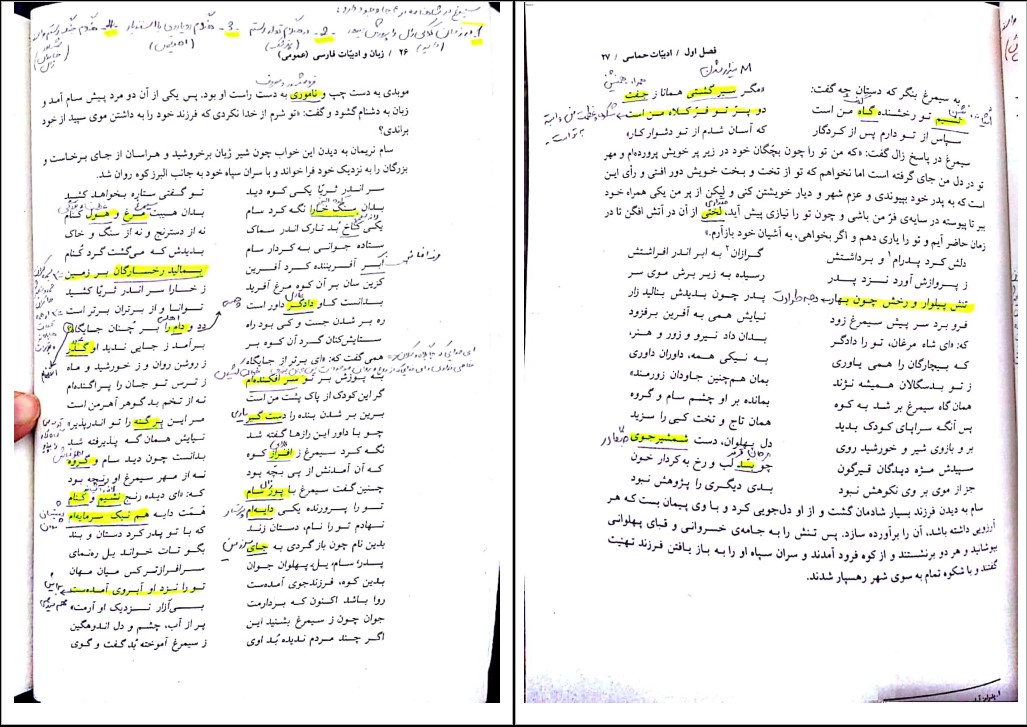 ۲۶ / زبان و ادبیّات فارسی (عمومی)
موبدی به دست چپ و ناموری به دست راست او بود. پس یکی از آن دو مرد پیش سام آمد و
زبان به دشنام گشود و گفت: «تو شرم از خدا نکردی که فرزند خود را به داشتن موی سپید از خود
براندی؟
سام نریمان به دیدن این خواب چون شیر ژیان برخروشید و هراسان از جای برخاست و
بزرگان را به نزدیک خود فرا خواند و با سران سپاه خود به جانب البرز کوه روان شد.
سر اندر ثریّا یکی کوه دید تو گفتی ستاره بخواهد کشید
بدان سنگ خارا نگه کرد سام بدان هیبت مرغ و هول کنام
یکی کاخ بُد تارک اندر سماک نه از دسترنج و نه از سنگ و خاک
ستاده جوانی به کردار سام بدیدش که می‌گشت گرد کُنام
ابر آفریننده کرد آفرین بمالید رخسارگان بر زمین
کزین سان بر آن کوه مرغ آفرید ز خارا سر اندر ثریّا کشید
بدانست کاو دادگر داور است توانا و از برتران برتر است
ره بر شدن جست و کی بود راه دد و دام را بر چُنان جایگاه
ستایش‌کنان گرد آن کوه بر برآمد ز جایی ندید او گذر
همی گفت که: «ای برتر از جایگاه ز روشن روان و ز خورشید و ماه
به پوزش بر تو سر افکنده‌ام ز ترس تو جان را پراگنده‌ام
گر این کودک از پاک پشت من است نه از تخم بد گوهر آهرمن است
برین بر شدن بنده را دست گیر مر این پر گنه را تو اندرپذیر»
چو با داور این رازها گفته شد نیایش همان گه پذیرفته شد
نگه کرد سیمرغ ز افراز کوه بدانست چون دید سام و گروه
که آن آمدنش از پی بچّه بود نه از مهر سیمرغ او رنجه بود
چنین گفت سیمرغ با پور سام که: «ای دیده رنج نشیم و کنام
تو را پرورنده یکی دایه‌ام هَمَت دایه هم نیک سرمایه‌ام
نهادم تو را نام، دستان زند که با تو پدر کرد دستان و بند
بدین نام چون بازگردی به جای بگو تات خواند یل رهنمای
پدر، سام، یل، پهلوان جوان سرافرازتر کس میان مهان
بدین کوه، فرزندجوی آمده‌ست تو را نزد او آبروی آمده‌ست
روا باشد اکنون که بردارمت بی‌آزار نزدیک او آرمت»
جوان چون ز سیمرغ بشنید این پر از آب، چشم و دل اندوهگین
اگر چند مردم ندیده بُد اوی ز سیمرغ آموخته بُد گفت و گوی
فصل اول / ادبیّات حماسی / ۲۷
به سیمرغ بنگر که دستان چه گفت: «مگر سیر گشتی همانا ز جفت
نشیم تو رخشنده گاه من است دو پر تو فرّ کلاه من است
سپاس از تو دارم پس از کردگار که آسان شدم از تو دشوار کار»
سیمرغ در پاسخ زال گفت: «که من تو را چون بچّگان خود در زیر پر خویش پرورده‌ام و مهر
تو در دل من جای گرفته است اما نخواهم که تو از تخت و بخت خویش دور افتی و رأی این
است که به پدر خود بپیوندی و عزم شهر و دیار خویشتن کنی و لیکن از پر من یکی همراه خود
بر تا پیوسته در سایه‌ی فرّ من باشی و چون تو را نیازی پیش آید، لختی از آن در آتش افگن تا در
زمان حاضر آیم و تو را یاری دهم و اگر بخواهی، به آشیان خود بازآرم.»
دلش کرد پدرام و برداشتش گرازان به ابر اندر افراشتش
ز پروازش آورد نزد پدر رسیده به زیر برش موی سر
تنش پیلوار و رخش چون بهار پدر چون بدیدش بنالید زار
فرو برد سر پیش سیمرغ زود نیایش همی به آفرین برفزود
که: «ای شاه مرغان، تو را دادگر بدان داد نیرو و زور و هنر،
که بیچارگان را همی یاوری به نیکی همه، داوران داوری
ز تو بدسگالان همیشه نژند بمان هم‌چنین جاودان زورمند»
همان گاه سیمرغ بر شد به کوه بمانده بر او چشم سام و گروه
پس آنگه سراپای کودک بدید همان تاج و تخت کیی را سزید
بر و بازوی شیر و خورشید روی دل پهلوان، دست شمشیرجوی
سپیدش مژه دیدگان قیرگون چو بسد لب و رخ به کردار خون
جز از موی بر وی نکوهش نبود بدی دیگری را پژوهش نبود
سام به دیدن فرزند بسیار شادمان گشت و از او دل‌جویی کرد و با وی پیمان بست که هر
آرزویی داشته باشد، آن را برآورده سازد. پس تنش را به جامه‌ی خسروانی و قبای پهلوانی
بپوشاند و هر دو برنشستند و از کوه فرود آمدند و سران سپاه او را به باز یافتن فرزند تهنیت
گفتند و با شکوه تمام به سوی شهر رهسپار شدند.